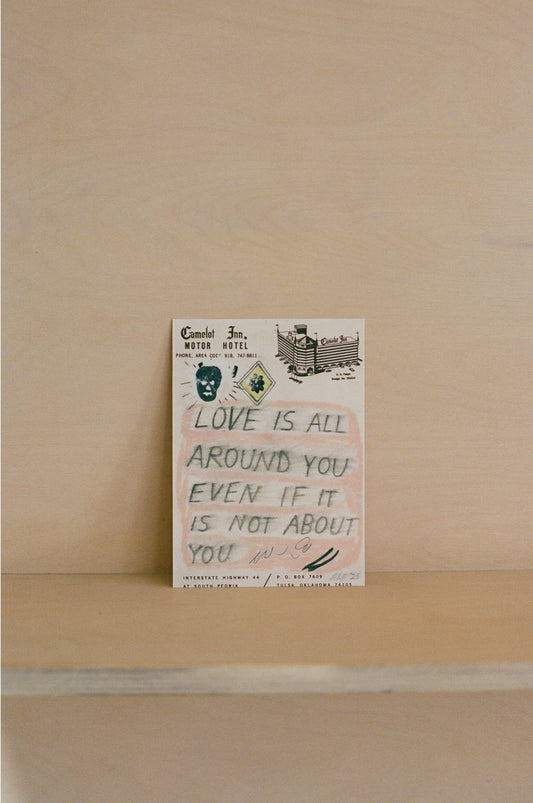 Camelot Inn.
MOTOR HOTEL
PHONE, AREA CODE 918, 747-8811
Camelot Inn
LOVE IS ALL
AROUND YOU
EVEN IF IT
IS NOT ABOUT
YOU
INTERSTATE HIGHWAY 44 / P. O. BOX 7609
AT SOUTH PEORIA TULSA, OKLAHOMA 74105